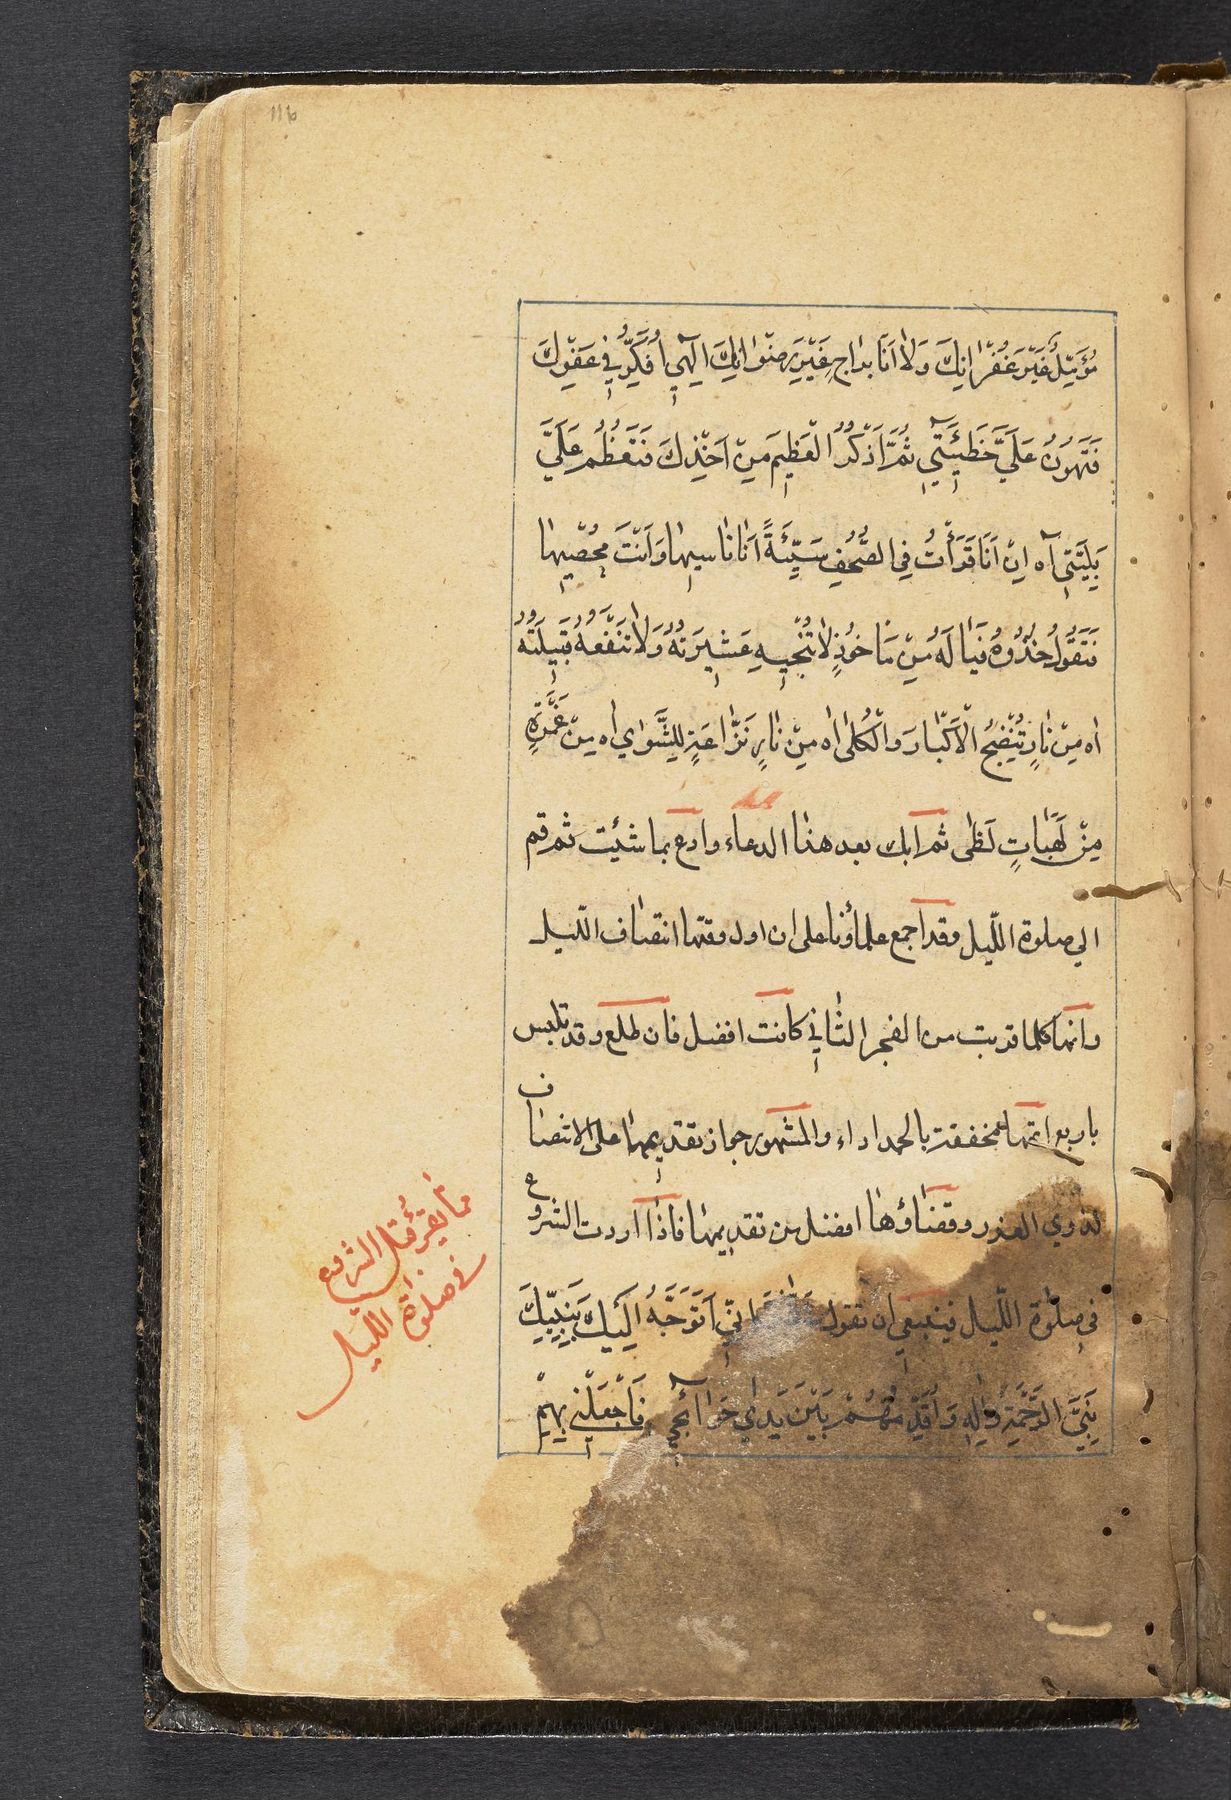 مُؤَمِّلٌ غَيْرَ غُفْرَانِكَ وَلَا أَنَا بِرَاجٍ غَيْرَ رِضْوَانِكَ اِلٰهِي أُفَكِّرُ فِي عَفْوِكَ
فَتَهُونُ عَلَيَّ خَطِيئَتِي ثُمَّ أَذْكُرُ الْعَظِيمَ مِنْ اَخْذِكَ فَتَعْظُمُ عَلَيَّ
بَلِيَّتِي آه اِنْ اَنَا قَرَأْتُ فِي الصُّحُفِ سَيِّئَةً اَنَا نَاسِيهَا وَاَنْتَ مُحْصِيهَا
فَتَقُولُ خُذُوهُ فَيَالَهُ مِنْ مَأْخُوذٍ لَا تُنْجِيهِ عَشِيرَتُهُ وَلَا تَنْفَعُهُ قَبِيلَتُهُ
اه مِنْ نَارٍ تُنْضِجُ الْاَكْبَادَ وَالْكُلٰى اه مِنْ نَارٍ نَزَّاعَةٍ لِلشَّوٰى اه مِنْ غَمْرَةٍ
مِنْ لَهَبَاتِ لَظٰى ثم ابك بعد هذا الدعاء وادع بما شئت ثم قم
الي صلوة اللّيل وقد اجمع علماؤنا على ان اول وقتها انتصاف اللّيل
وانها كلما قربت من الفجر الثاني كانت افضل فان طلع وقد تلبس
باربع اتمها مخففة بالحمد اداء والمشهور جواز تقديمها على الانتصاف
لذوي العذر وقضاؤها افضل من تقديمها فاذا اردت الشروع
في صلوة اللّيل فينبغي ان تقول اِنِّي اَتَوَجَّهُ اِلَيْكَ بِنَبِيِّكَ
نَبِيِّ الرَّحْمَةِ وَاٰلِهِ وَاُقَدِّمُهُمْ بَيْنَ يَدَي حَوَآئِجِي فَاجْعَلْنِي بِهِمْ
مما يقرء قبل الشروع
في صلوة اللّيل